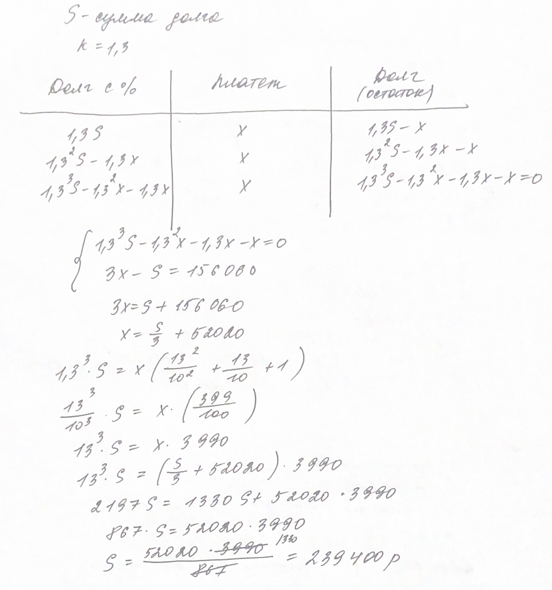 S - сумма долга
k = 1,3
Долг с % | Платеж | Долг (остаток)
1,3S | x | 1,3S - x
1,3²S - 1,3x | x | 1,3²S - 1,3x - x
1,3³S - 1,3²x - 1,3x | x | 1,3³S - 1,3²x - 1,3x - x = 0
{ 1,3³S - 1,3²x - 1,3x - x = 0
3x - S = 156060
3x = S + 156060
x = S/3 + 52020
1,3³ · S = x (13²/10² + 13/10 + 1)
13³/10³ · S = x · (399/100)
13³ · S = x · 3990
13³ · S = (S/3 + 52020) · 3990
2197S = 1330S + 52020 · 3990
867 · S = 52020 · 3990
S = 52020 · 3990 / 867 = 239400 р